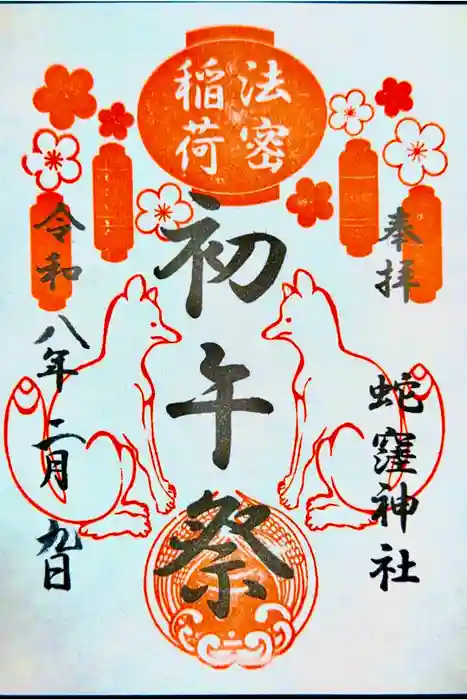 法密
稲荷
奉拝
蛇窪神社
初午祭
令和八年二月九日